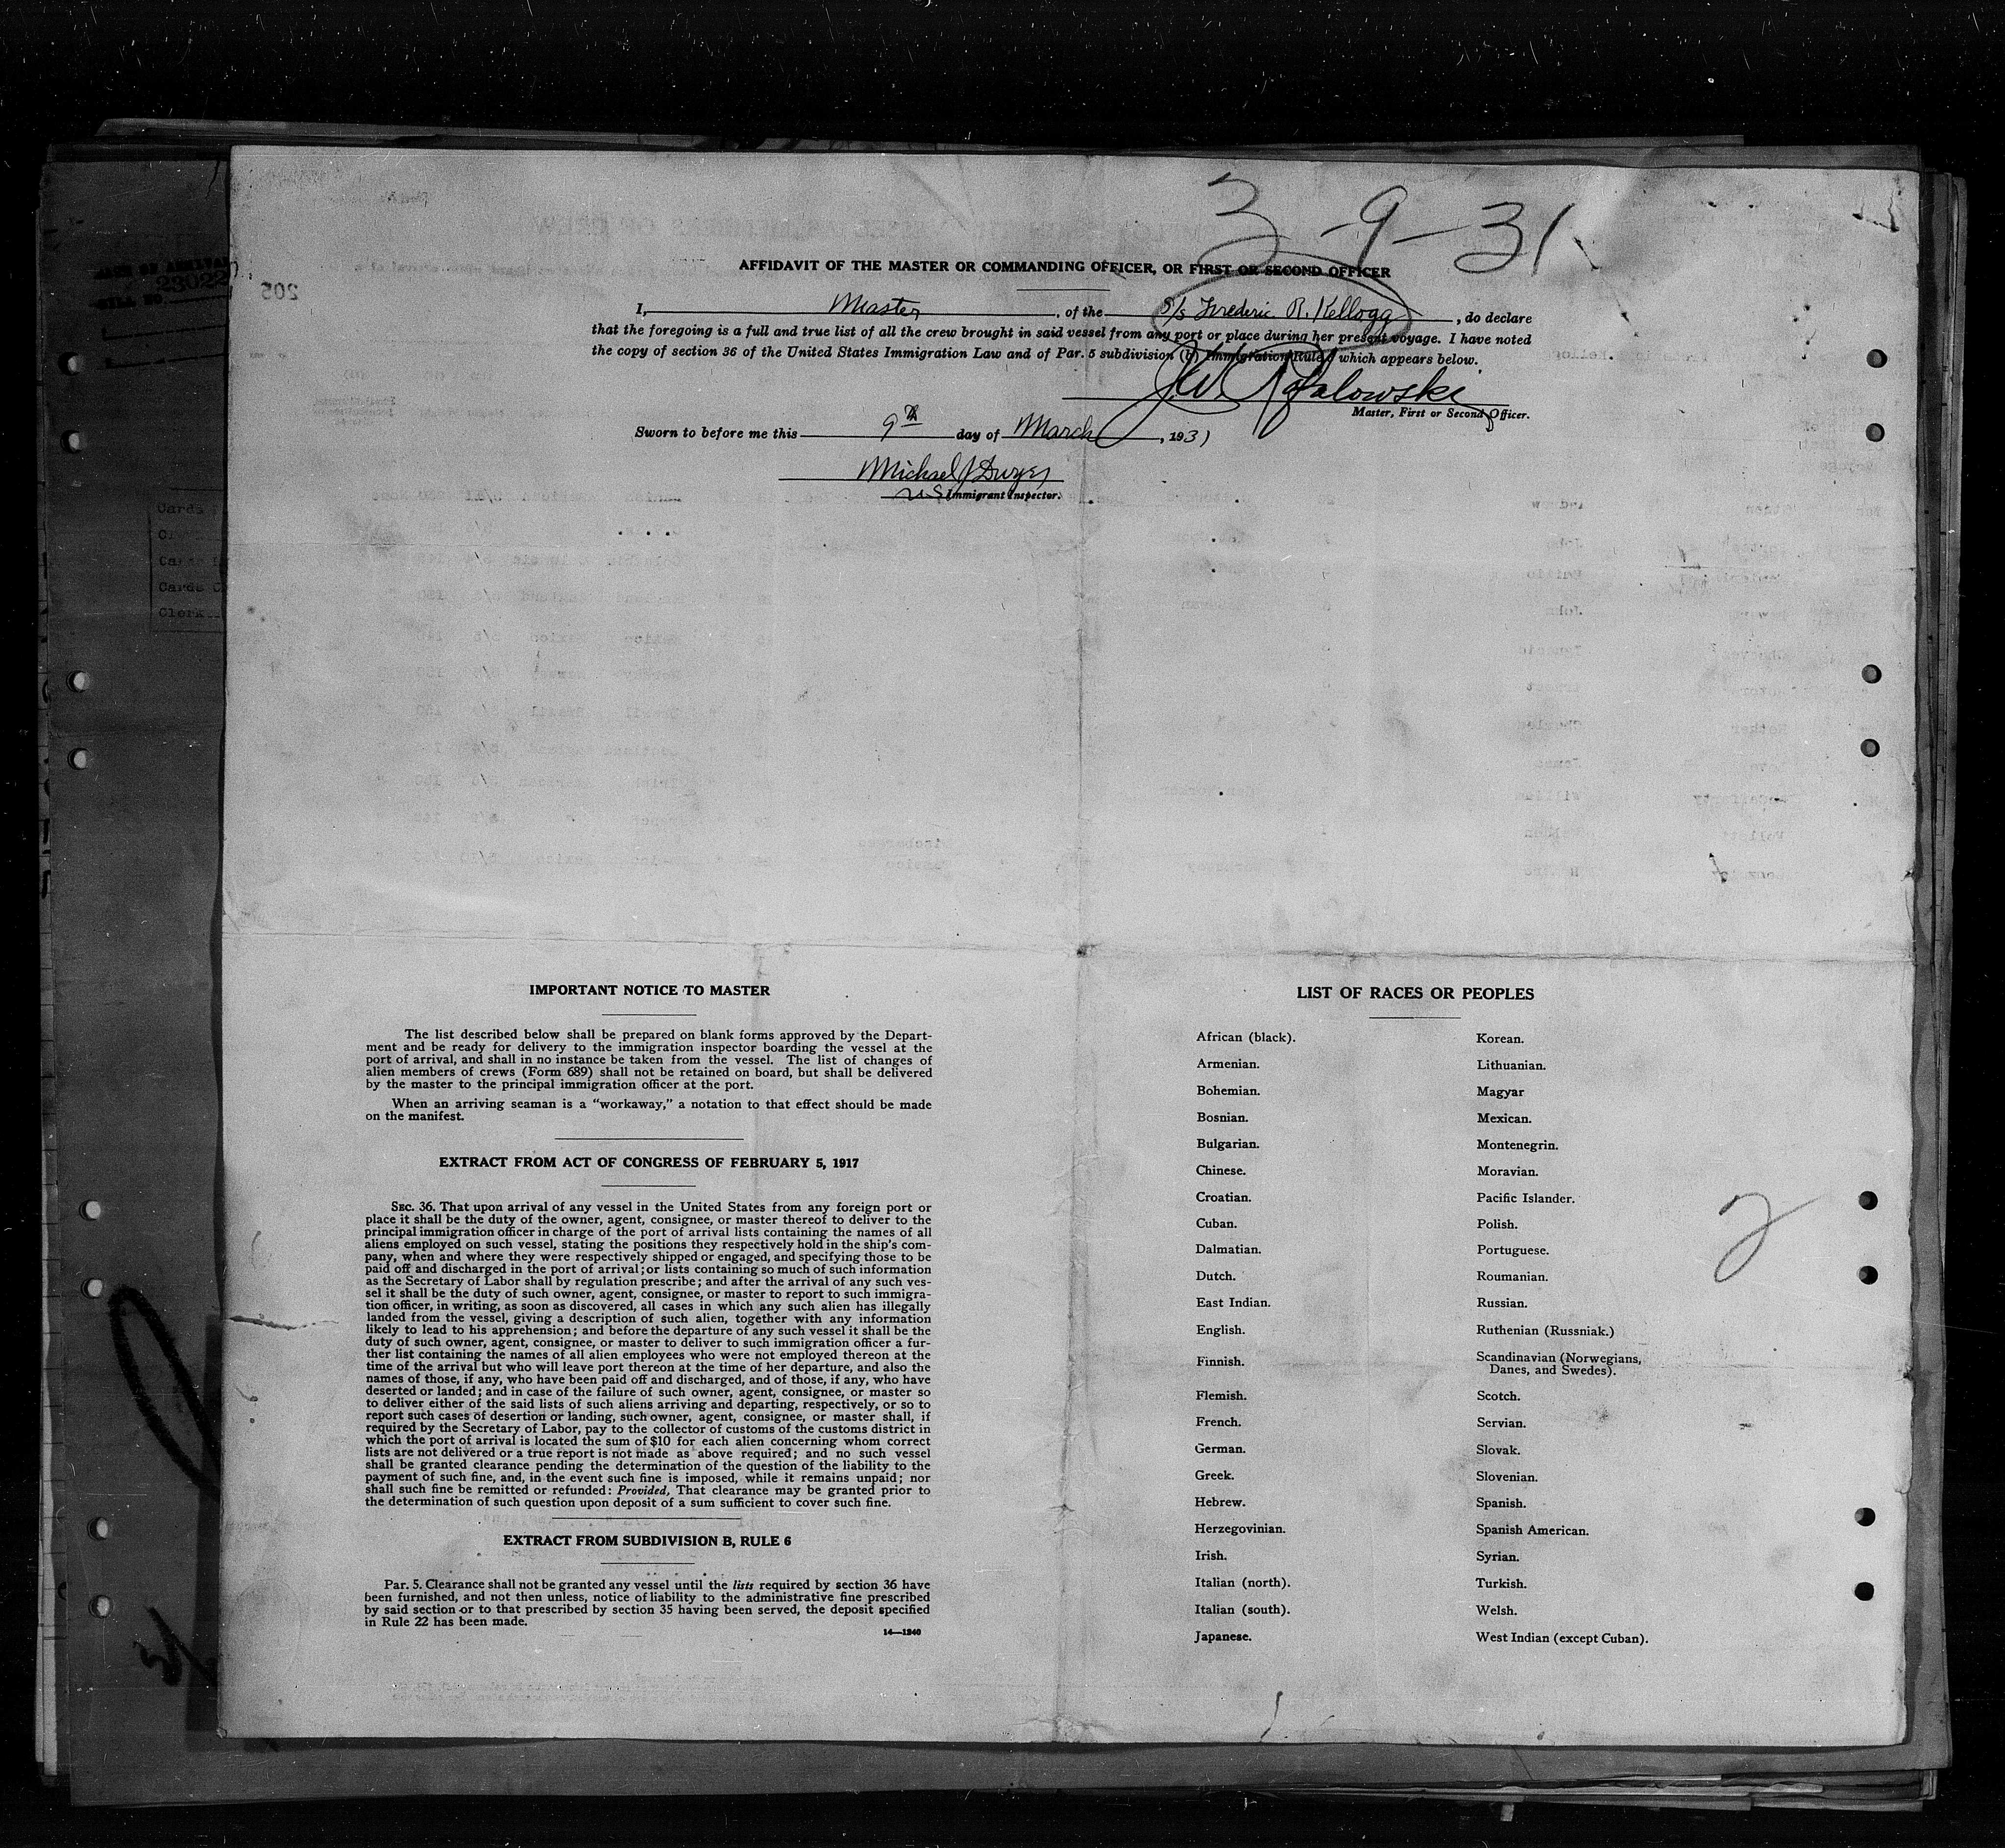 3-9-31
AFFIDAVIT OF THE MASTER OR COMMANDING OFFICER, OR FIRST OR SECOND OFFICER
I, Master, of the S/S Frederic R. Kellogg, do declare
that the foregoing is a full and true list of all the crew brought in said vessel from any port or place during her present voyage. I have noted
the copy of section 36 of the United States Immigration Law and of Par. 5 subdivision (b) Immigration Rule 6 which appears below.
Master, First or Second Officer.
Sworn to before me this 9th day of March, 1931
Michael J Dwyer
US Immigrant Inspector.
23022
Cards
Cards
Cards
Clerk
IMPORTANT NOTICE TO MASTER
The list described below shall be prepared on blank forms approved by the Depart-
ment and be ready for delivery to the immigration inspector boarding the vessel at the
port of arrival, and shall in no instance be taken from the vessel. The list of changes of
alien members of crews (Form 689) shall not be retained on board, but shall be delivered
by the master to the principal immigration officer at the port.
When an arriving seaman is a "workaway," a notation to that effect should be made
on the manifest.
EXTRACT FROM ACT OF CONGRESS OF FEBRUARY 5, 1917
SEC. 36. That upon arrival of any vessel in the United States from any foreign port or
place it shall be the duty of the owner, agent, consignee, or master thereof to deliver to the
principal immigration officer in charge of the port of arrival lists containing the names of all
aliens employed on such vessel, stating the positions they respectively hold in the ship's com-
pany, when and where they were respectively shipped or engaged, and specifying those to be
paid off and discharged in the port of arrival; or lists containing so much of such information
as the Secretary of Labor shall by regulation prescribe; and after the arrival of any such ves-
sel it shall be the duty of such owner, agent, consignee, or master to report to such immigra-
tion officer, in writing, as soon as discovered, all cases in which any such alien has illegally
landed from the vessel, giving a description of such alien, together with any information
likely to lead to his apprehension; and before the departure of any such vessel it shall be the
duty of such owner, agent, consignee, or master to deliver to such immigration officer a fur-
ther list containing the names of all alien employees who were not employed thereon at the
time of the arrival but who will leave port thereon at the time of her departure, and also the
names of those, if any, who have been paid off and discharged, and of those, if any, who have
deserted or landed; and in case of the failure of such owner, agent, consignee, or master so
to deliver either of the said lists of such aliens arriving and departing, respectively, or so to
report such cases of desertion or landing, such owner, agent, consignee, or master shall, if
required by the Secretary of Labor, pay to the collector of customs of the customs district in
which the port of arrival is located the sum of $10 for each alien concerning whom correct
lists are not delivered or a true report is not made as above required; and no such vessel
shall be granted clearance pending the determination of the question of the liability to the
payment of such fine, and, in the event such fine is imposed, while it remains unpaid; nor
shall such fine be remitted or refunded: Provided, That clearance may be granted prior to
the determination of such question upon deposit of a sum sufficient to cover such fine.
EXTRACT FROM SUBDIVISION B, RULE 6
Par. 5. Clearance shall not be granted any vessel until the lists required by section 36 have
been furnished, and not then unless, notice of liability to the administrative fine prescribed
by said section or to that prescribed by section 35 having been served, the deposit specified
in Rule 22 has been made.
14—1240
LIST OF RACES OR PEOPLES
African (black).
Armenian.
Bohemian.
Bosnian.
Bulgarian.
Chinese.
Croatian.
Cuban.
Dalmatian.
Dutch.
East Indian.
English.
Finnish.
Flemish.
French.
German.
Greek.
Hebrew.
Herzegovinian.
Irish.
Italian (north).
Italian (south).
Japanese.
Korean.
Lithuanian.
Magyar
Mexican.
Montenegrin.
Moravian.
Pacific Islander.
Polish.
Portuguese.
Roumanian.
Russian.
Ruthenian (Russniak.)
Scandinavian (Norwegians,
Danes, and Swedes).
Scotch.
Servian.
Slovak.
Slovenian.
Spanish.
Spanish American.
Syrian.
Turkish.
Welsh.
West Indian (except Cuban).
2